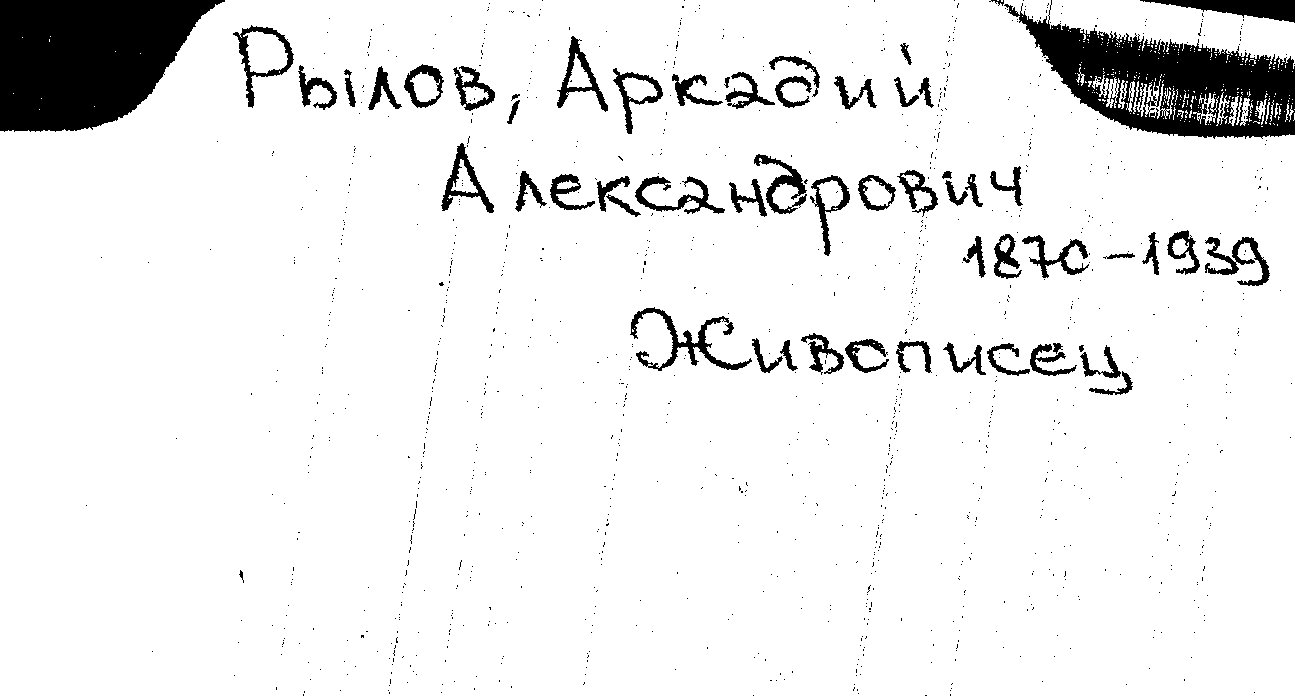 Рылов, Аркадий
Александрович
1870-1939
Живописец